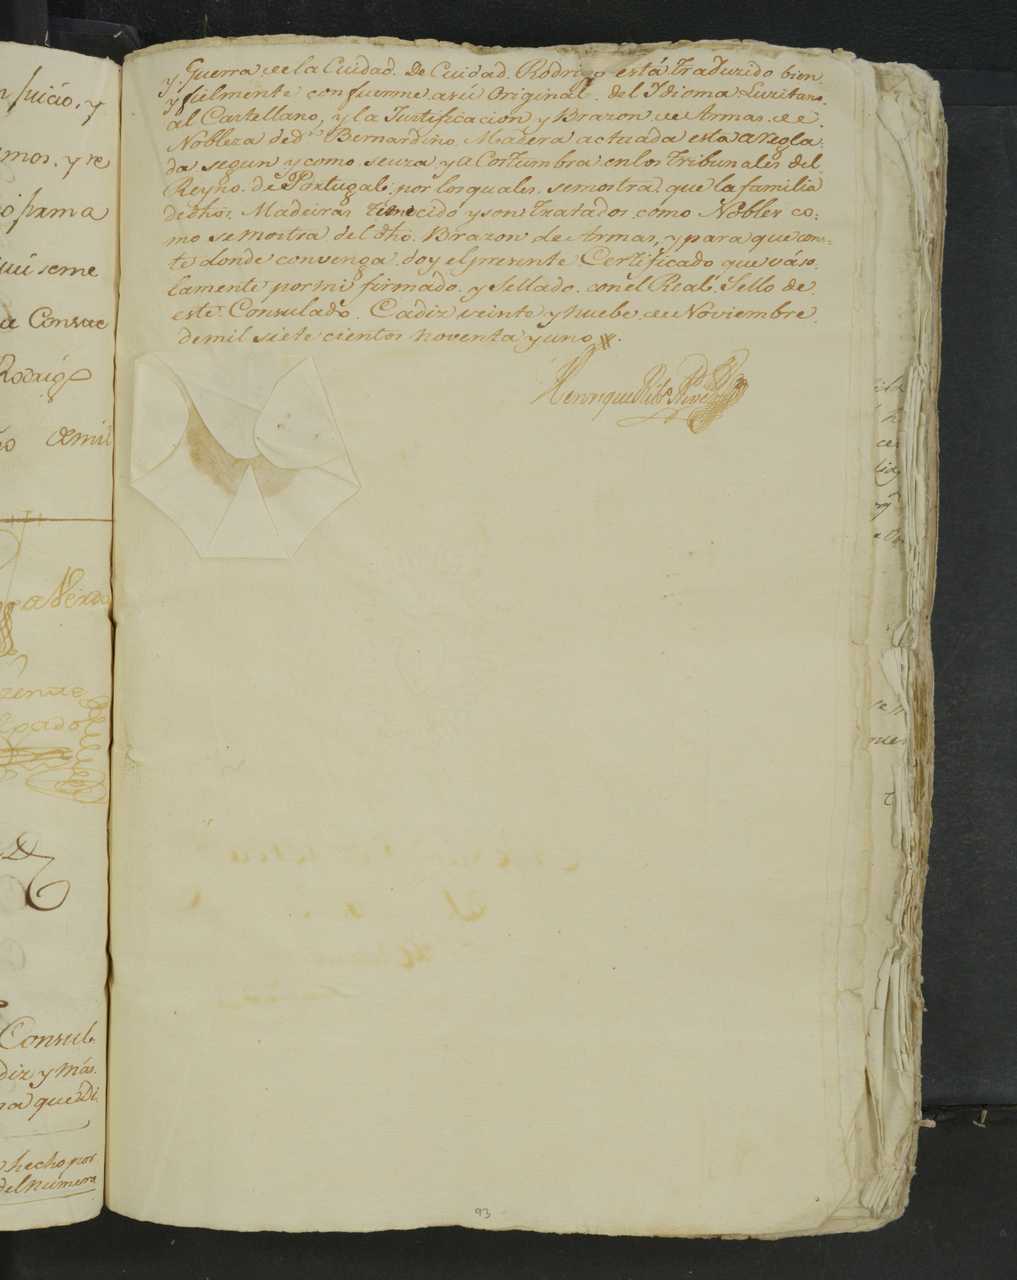 n Juicio, y
mos, y re
firma
qui seme
Consu
Rodrig
o demil
Consul
diz y Más.
na que Di
hecho por
del numero
y Guerra de la Cuidad. De Cuidad. Rodrigo está Traduzido bien
y fielmente confuerme asú Original. del Ydioma Luzitano.
al Castellano, y la Justificacion y Brazon de Armas. de
Nobleza ded.ⁿ Bernardino Madera actuada esta aregla:
da segun y como seuza y a Costumbra enlos Tribunales del
Reyno. de Portugal: por los quales. semostra que la familia
de dhos. Madeiras tenecido y son Tratados. como Nobles co:
mo semostra del dho. Brazon de Armas, y para que cons:
te donde convenga. doy el presente Certificado que váso.
lamente por mi firmado. y Sellado. con el Real. Sello de
este Consulado. Cadiz veinte y nuebe. de Noviembre
demil siete cientos noventa y uno.
Henrique Rib.º
93